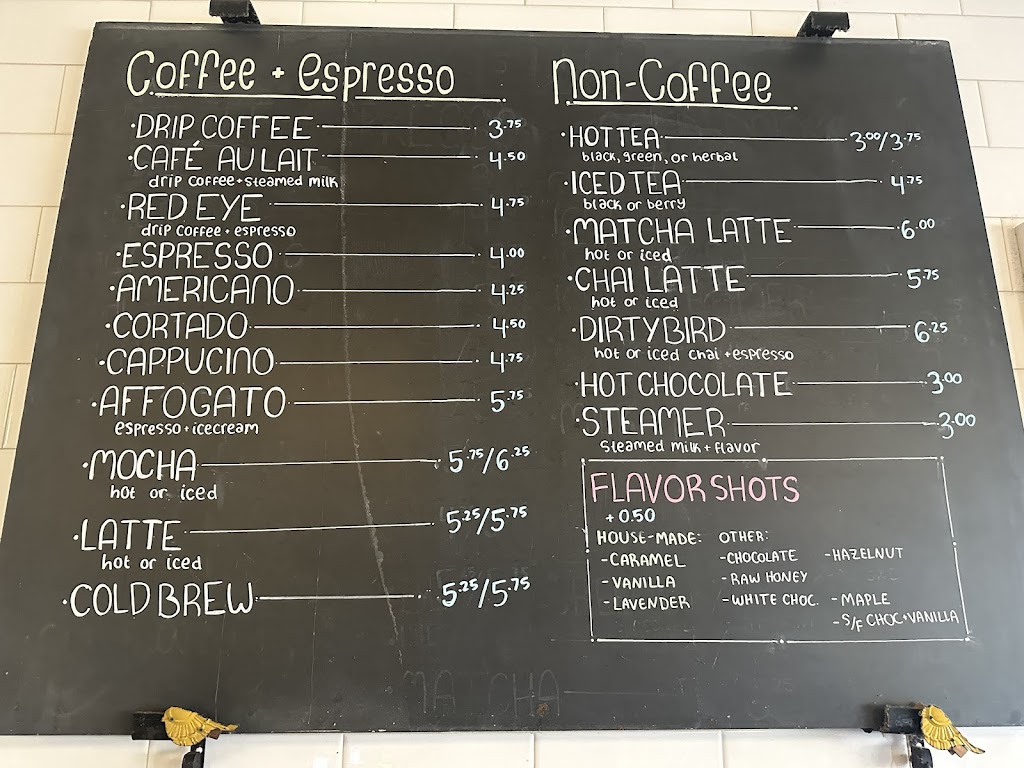 Coffee + espresso
·DRIP COFFEE 3.75
·CAFÉ AU LAIT 4.50
drip coffee + steamed milk
·RED EYE 4.75
drip coffee + espresso
·ESPRESSO 4.00
·AMERICANO 4.25
·CORTADO 4.50
·CAPPUCINO 4.75
·AFFOGATO 5.75
espresso + icecream
·MOCHA 5.75/6.25
hot or iced
·LATTE 5.25/5.75
hot or iced
·COLD BREW 5.25/5.75
Non-Coffee
·HOT TEA 3.00/3.75
black, green, or herbal
·ICED TEA 4.75
black or berry
·MATCHA LATTE 6.00
hot or iced
·CHAI LATTE 5.75
hot or iced
·DIRTY BIRD 6.25
hot or iced chai + espresso
·HOT CHOCOLATE 3.00
·STEAMER 3.00
steamed milk + flavor
FLAVOR SHOTS
+ 0.50
HOUSE-MADE: OTHER:
-CARAMEL -CHOCOLATE -HAZELNUT
-VANILLA -RAW HONEY
-LAVENDER -WHITE CHOC. -MAPLE
-S/F CHOC+VANILLA
MATCHA